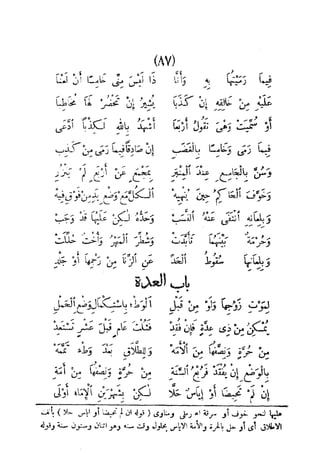 (٨٧)
فيما رميتها به وأنا ذا ليس مني خامسا أن لعنا
عليه من خالقه إن كذبا يشير إن تحضر لها مخاطبا
أو سميت وهي تقول أربعا أشهد بالله لكذبا ادعى
فيما رمى وخامسا بالغضب إن صادقا فيما رمى من كذب
وسن بالجامع عند المنبر بمجمع عن أربع لم ينزر
وخوف الحاكم حين ينهيه الكل مع وضع يد من فوق فيه
وبلعانه انتفى عنه النسب وحده لكن عليها قد وجب
وحرمة بينهما تأبدت وشطر المهر وأخت حللت
وبلعانها سقوط الحد عن الزنا من رجمها أو جلد
باب العدة
لموت زوجها ولو من قبل الوطء باستكمال وضع الحمل
يمكن من ذي عدة فإن فقد فثلث عام قبل عشر تستعد
من حرة ونصفها من الأمة وللطلاق بعد وطء تممه
بالوضع إن يفقد فربع السنة من حرة ونصفها من أمة
إن لم تحيضا أو إياس حلا لكن بشهرين الإماء أولى
عليها لنحو خوف أو سرقة اه رملي ومناوى (قوله ان لم تحيضا أو اياس حلا) بألف
الاطلاق أي أو حل بالحرة والأمة الاياس بحلول وقت سنه وهو اثنان وستون سنة وقوله